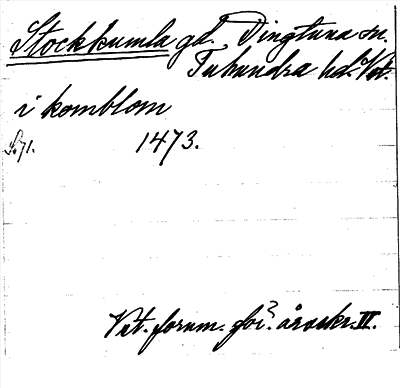 Stockkumla gd. Dingtuna sn.
Tuhundra hd. Vst.
i komblom
S. 71. 1473.
Vst. fornm. för:s årsskr. III.